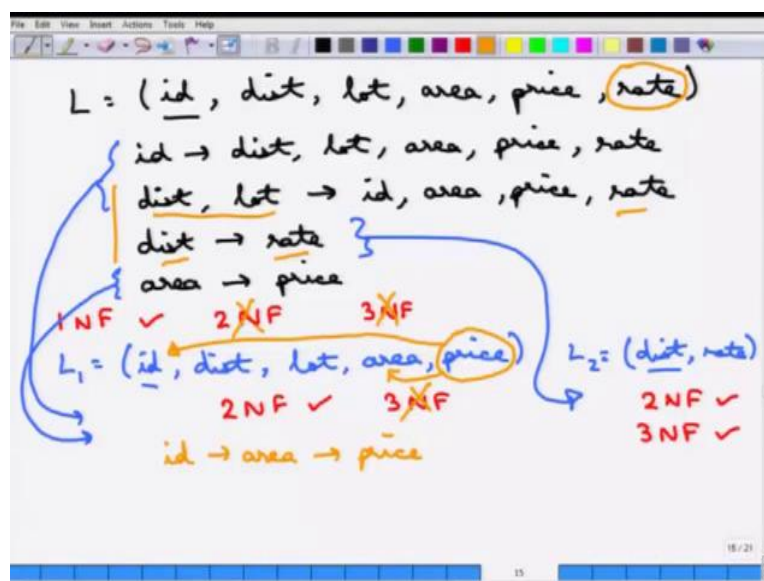 File Edit View Insert Actions Tools Help
L = (id, dist, lot, area, price, rate)
id → dist, lot, area, price, rate
dist, lot → id, area, price, rate
dist → rate
area → price
1NF ✓ 2NF 3NF
L₁ = (id, dist, lot, area, price) L₂ = (dist, rate)
2NF ✓ 3NF 2NF ✓
3NF ✓
id → area → price
15/21
15